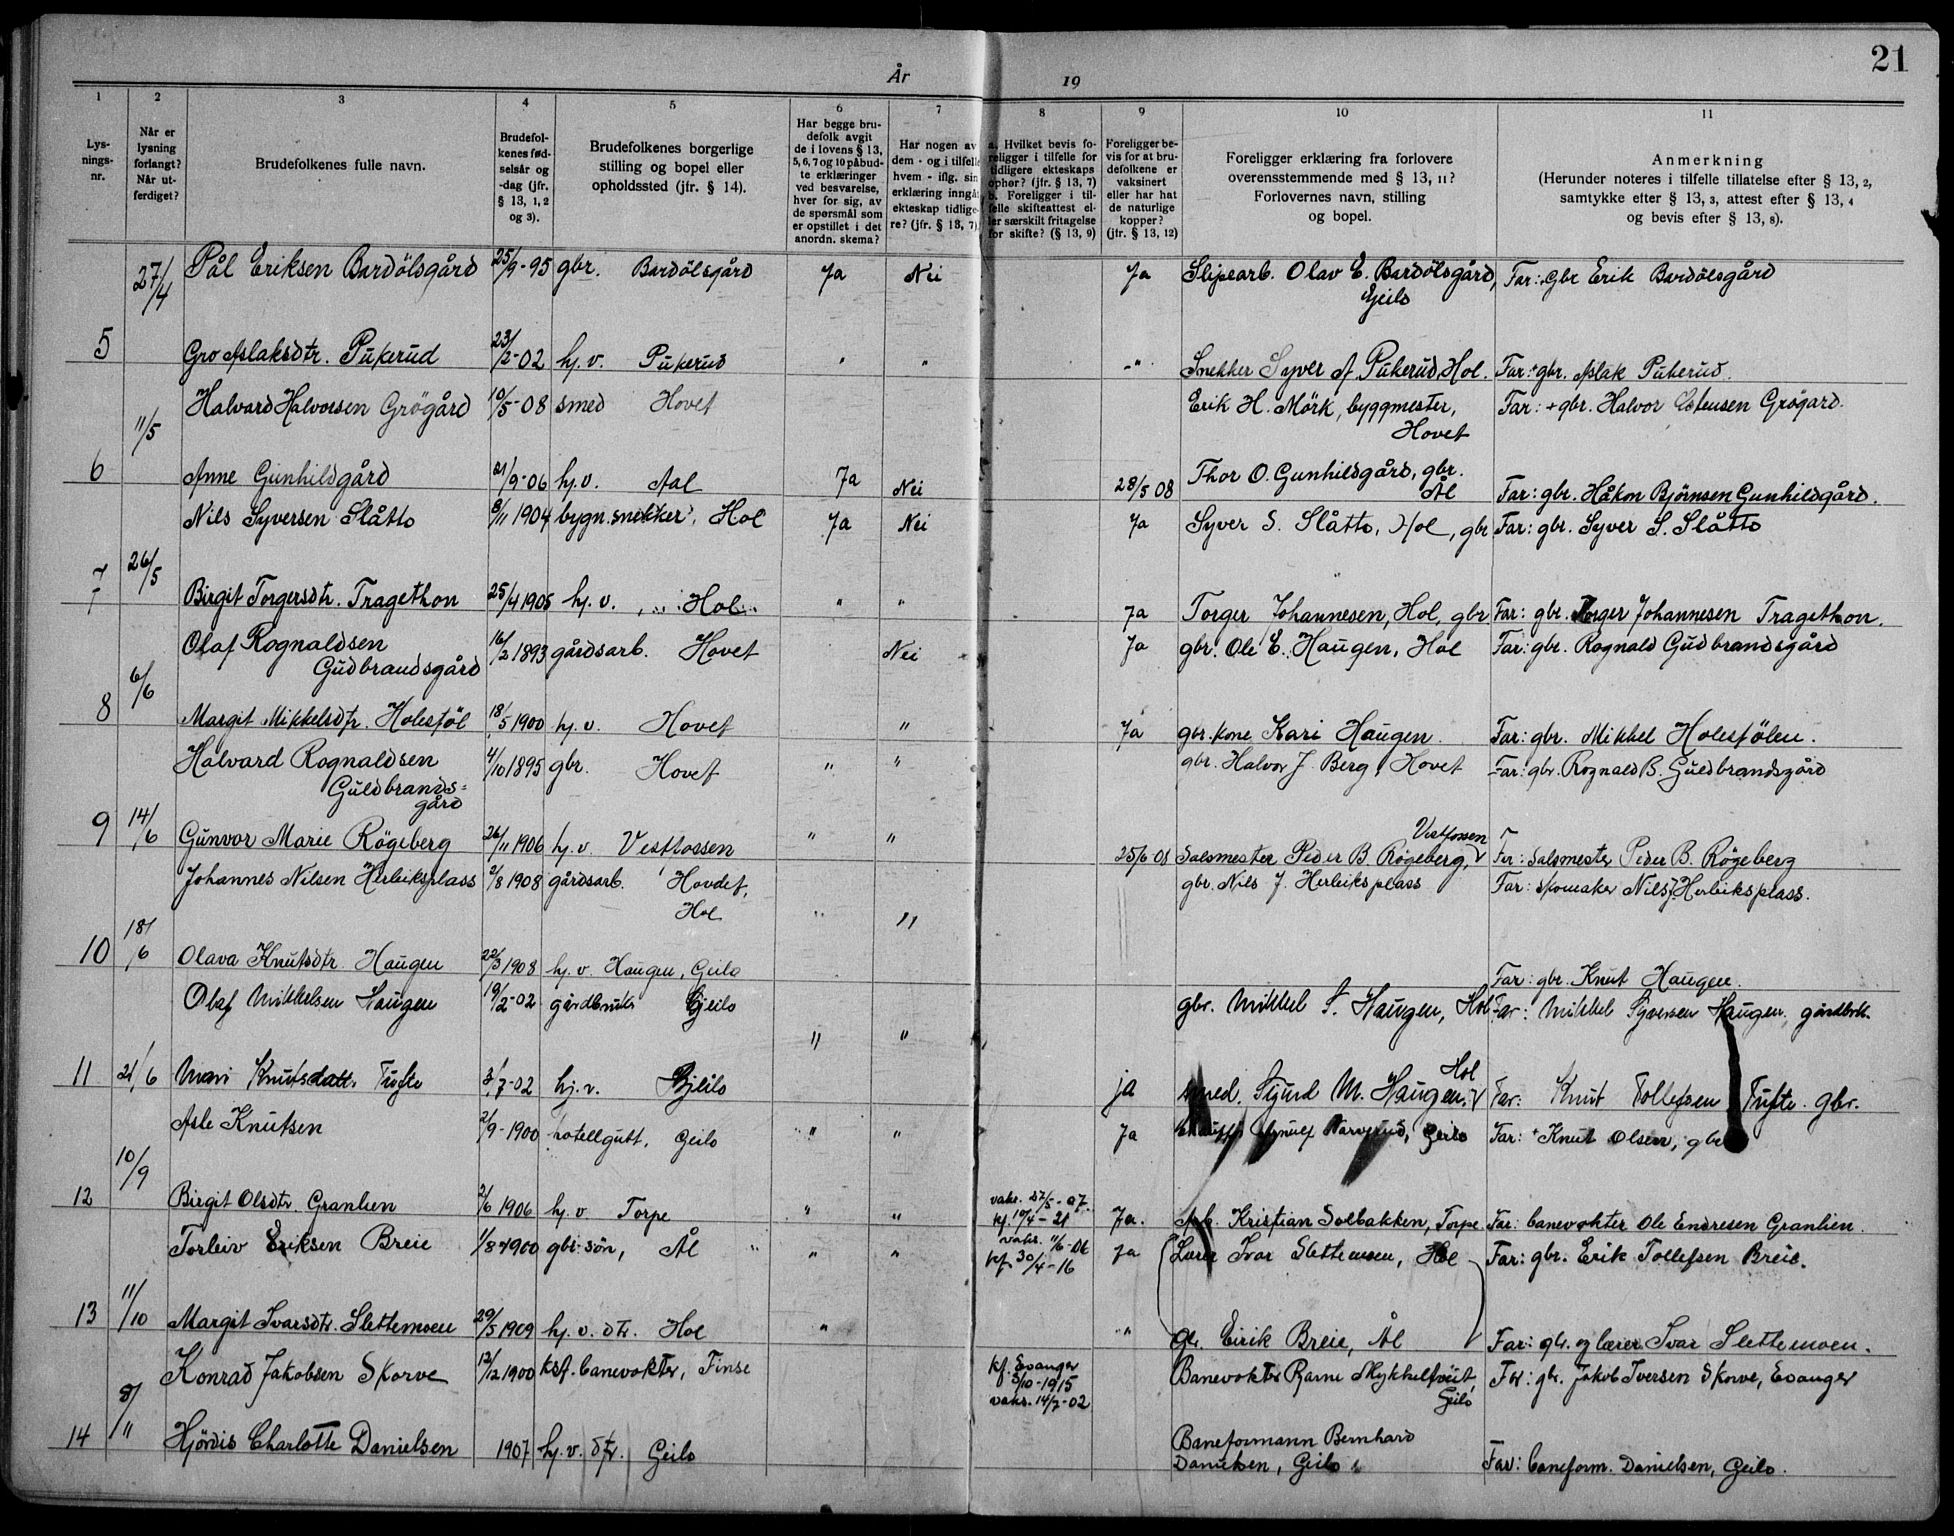 År
19
21
1
2
3
4
5
6
7
8
9
10
11
Lys-
nings-
nr.
Når er
lysning
forlangt?
Når ut-
ferdiget?
Brudefolkenes fulle navn.
Brudefol-
kenes fød-
selsår og
-dag (jfr.
§ 13, 1, 2
og 3).
Brudefolkenes borgerlige
stilling og bopel eller
opholdssted (jfr. § 14).
Har begge bru-
defolk avgit
de i lovens § 13,
5, 6, 7 og 10 påbud-
te erklæringer
ved besvarelse,
hver for sig, av
de spørsmål som
er opstillet i det
anordn. skema?
Har nogen av
dem - og i tilfelle
hvem - iflg. sin
erklæring inngåt
ekteskap tidlige-
re? (jfr. § 13, 7)
a. Hvilket bevis fo-
religger i tilfelle for
tidligere ekteskaps
ophør? (jfr. § 13, 7)
b. Foreligger i til-
felle skifteattest el-
ler særskilt fritagelse
for skifte? (§ 13, 9)
Foreligger be-
vis for at bru-
defolkene er
vaksinert
eller har hat
de naturlige
kopper?
(jfr. § 13, 12)
Foreligger erklæring fra forlovere
overensstemmende med § 13, 11?
Forlovernes navn, stilling
og bopel.
Anmerkning
(Herunder noteres i tilfelle tillatelse efter § 13, 2,
samtykke efter § 13, 3, attest efter § 13, 4
og bevis efter § 13, 8).
27/4 Pål Eriksen Bardölsgård 25/9-95 gbr. Bardölsgård Ja Nei Ja Slipearb. Olav E. Bardölsgård, Far: Gbr Erik Bardölsgård
Geilo
5 Gro Aslaksdtr. Pukerud 23/2-02 hj.v. Pukerud " " " Snekker Syver A. Pukerud Hol. Far: + gbr. Aslak Pukerud.
11/5 Halvard Halvorsen Grögård 10/5-08 smed Hovet Erik H. Mörk, byggmester, Far: + gbr. Halvor Estensen Grögard.
Hovet
6 Anne Gunhildgård 21/9-06 hj.v. Aal Ja Nei 28/5 08 Thor O. Gunhildgård, gbr. Ål Far: gbr. Håkon Björnsen Gunhildgård.
Nils Syversen Slåtto 8/11 1904 bygn.snekker, Hol Ja Nei Ja Syver S. Slåtto, Hol, gbr Far: gbr. Syver S. Slåtto
7 26/5 Birgit Torgersdtr. Tragethon 25/4 1905 hj.v. Hol " " Ja Torger Johannesen, Hol, gbr Far: gbr. Torger Johannesen Tragethon.
Olaf Rognaldsen 16/2 1893 gårdsarb. Hovet Nei Ja gbr. Ole E. Haugen, Hol Far: gbr. Rognald Gudbrandsgård
Gudbrandsgård
8 6/6 Margit Mikkelsdtr. Holestöl 18/5 1900 hj.v. Hovet " Ja gbr. kone Kari Haugen. Far: gbr. Mikkel Holestölen.
Halvard Rognaldsen 4/10 1895 gbr. Hovet " " gbr. Halvor J. Berg, Hovet Far: gbr. Rognald B. Guldbrandsgård
Guldbrands=
gård
9 14/6 Gunvor Marie Rögeberg 26/11 1906 hj.v. Vestfossen " " 25/6 08 Salsmester Peder B. Rögeberg, Vestfossen Far: Salsmester Peder B. Rögeberg
Johannes Nilsen Herleiksplass 2/8 1908 gårdsarb. Hovdet, gbr. Nils J. Herleiksplass Far: skomaker Nils J. Herleiksplass.
Hol " "
10 18/6 Olava Knutsdtr. Haugen 22/3 1908 hj.v. Haugen, Geilo Far: gbr. Knut Haugen.
Olaf Mikkelsen Haugen 19/2-02 gårdbruk Gjeilo " " gbr. Mikkel S. Haugen, Hol Far: Mikkel Syversen Haugen, gårdbrk.
11 21/6 Mari Knutsdatt. Tufte 3/7-02 hj.v. Gjeilo ja smed. Sjurd M. Haugen. Hol Far: Knut Tollefsen Tufte gbr.
Asle Knutsen 2/9-1900 hotellgutt, Geilo " " Ja Narverud, Geilo Far: + Knut Olsen, gbr
12 10/9 Birgit Olsdtr. Granlien 2/6 1906 hj.v. Torpe " " vaks. 27/5-07. kf. 10/4-21 Ja. Arb. Kristian Solbakken, Torpe Far: banevokter Ole Endresen Granlien.
Torleiv Eriksen Breie 1/8 1900 gbr. sön, Ål " " vaks. 11/6-06 kf 30/4-16 Ja Lærer Ivar Slettemoen, Hol Far: gbr. Erik Tollefsen Breie.
13 11/10 Margit Ivarsdtr. Slettemoen 29/5 1909 hj.v. dtr. Hol " " Gbr. Eirik Breie, Ål Far: gbr. og lærer Ivar Slettemoen.
Konrad Jakobsen Skorve 12/12 1900 kst. banevokter, Finse kf. Evanger 3/10-1915 vaks. 14/7-02 Banevokter Bjarne Mykkeltveit, Geilo Far: gbr. Jakob Iversen Skorve, Evanger
14 8/11 Hjördis Charlotte Danielsen 1907 hj.v. dtr. Geilo Baneformann Bernhard
Danielsen, Geilo Far: baneform. Danielsen, Geilo.